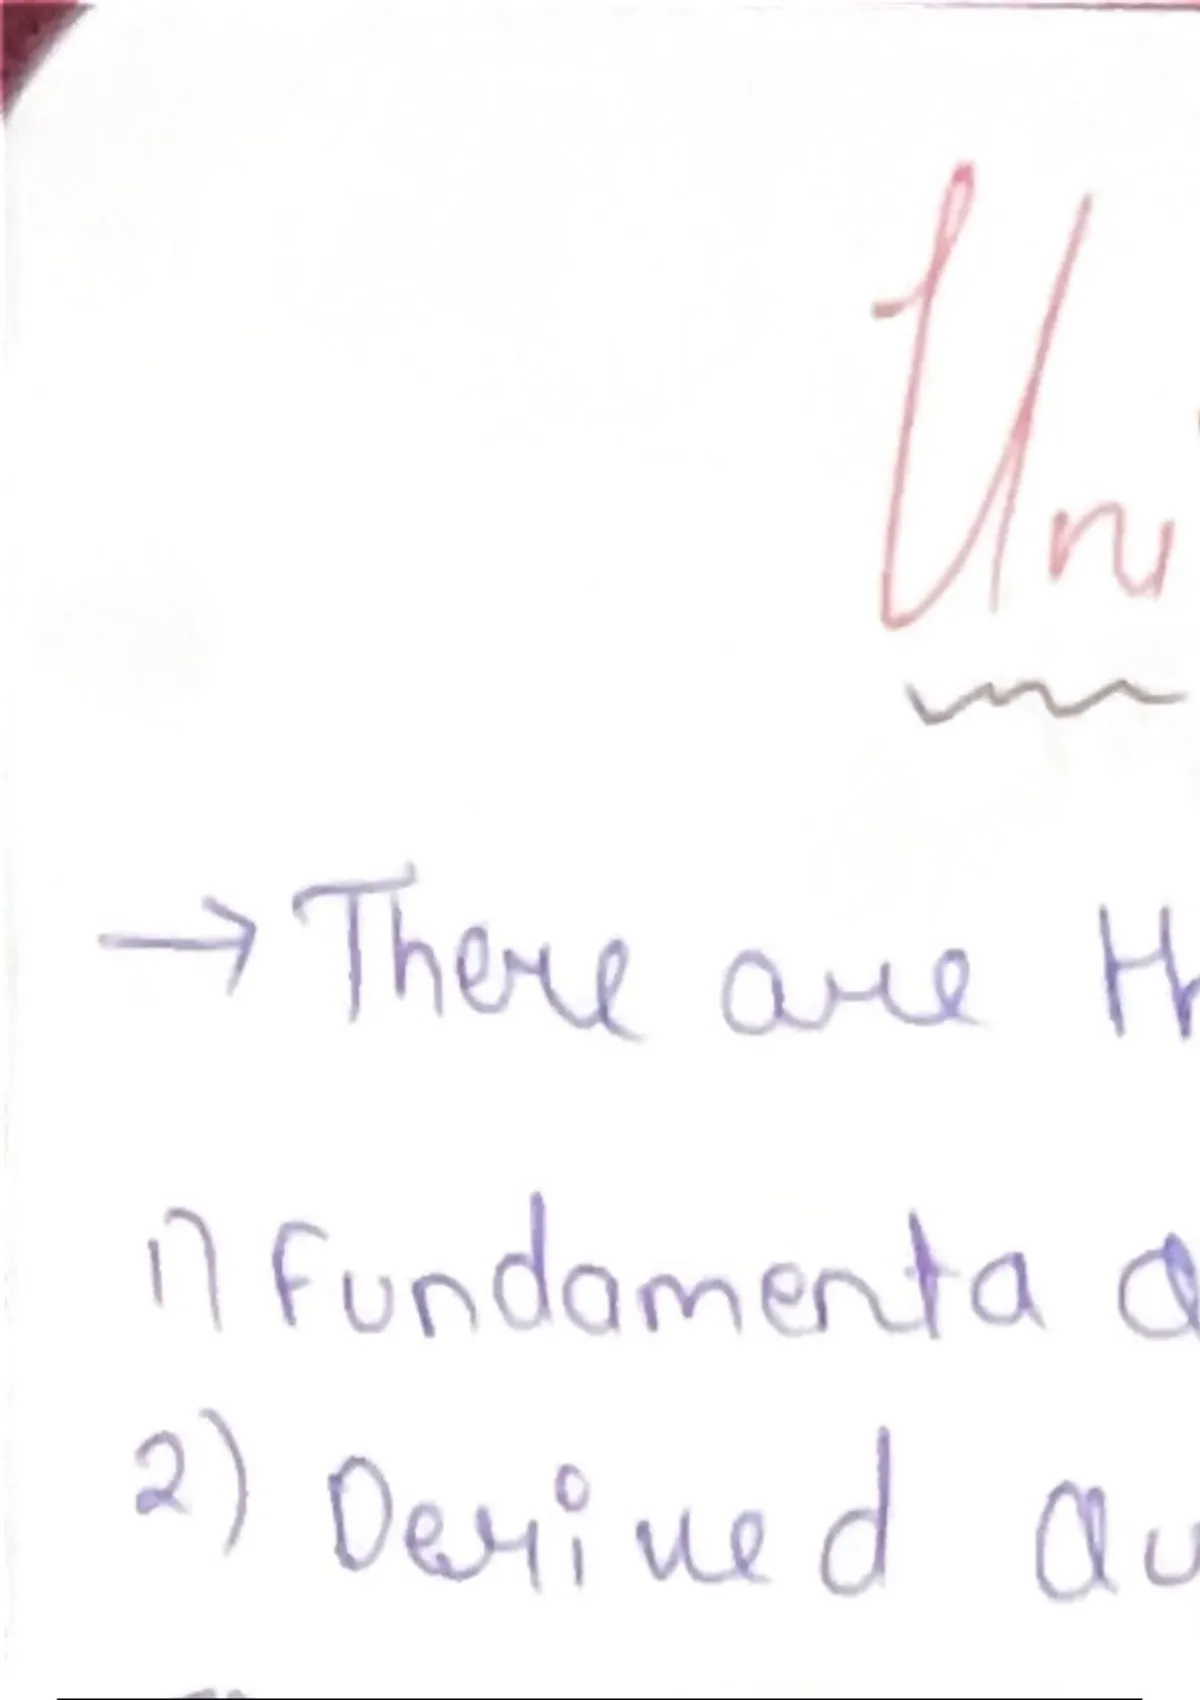 Uni
→ There are th
1) Fundamenta
2) Derived Qu